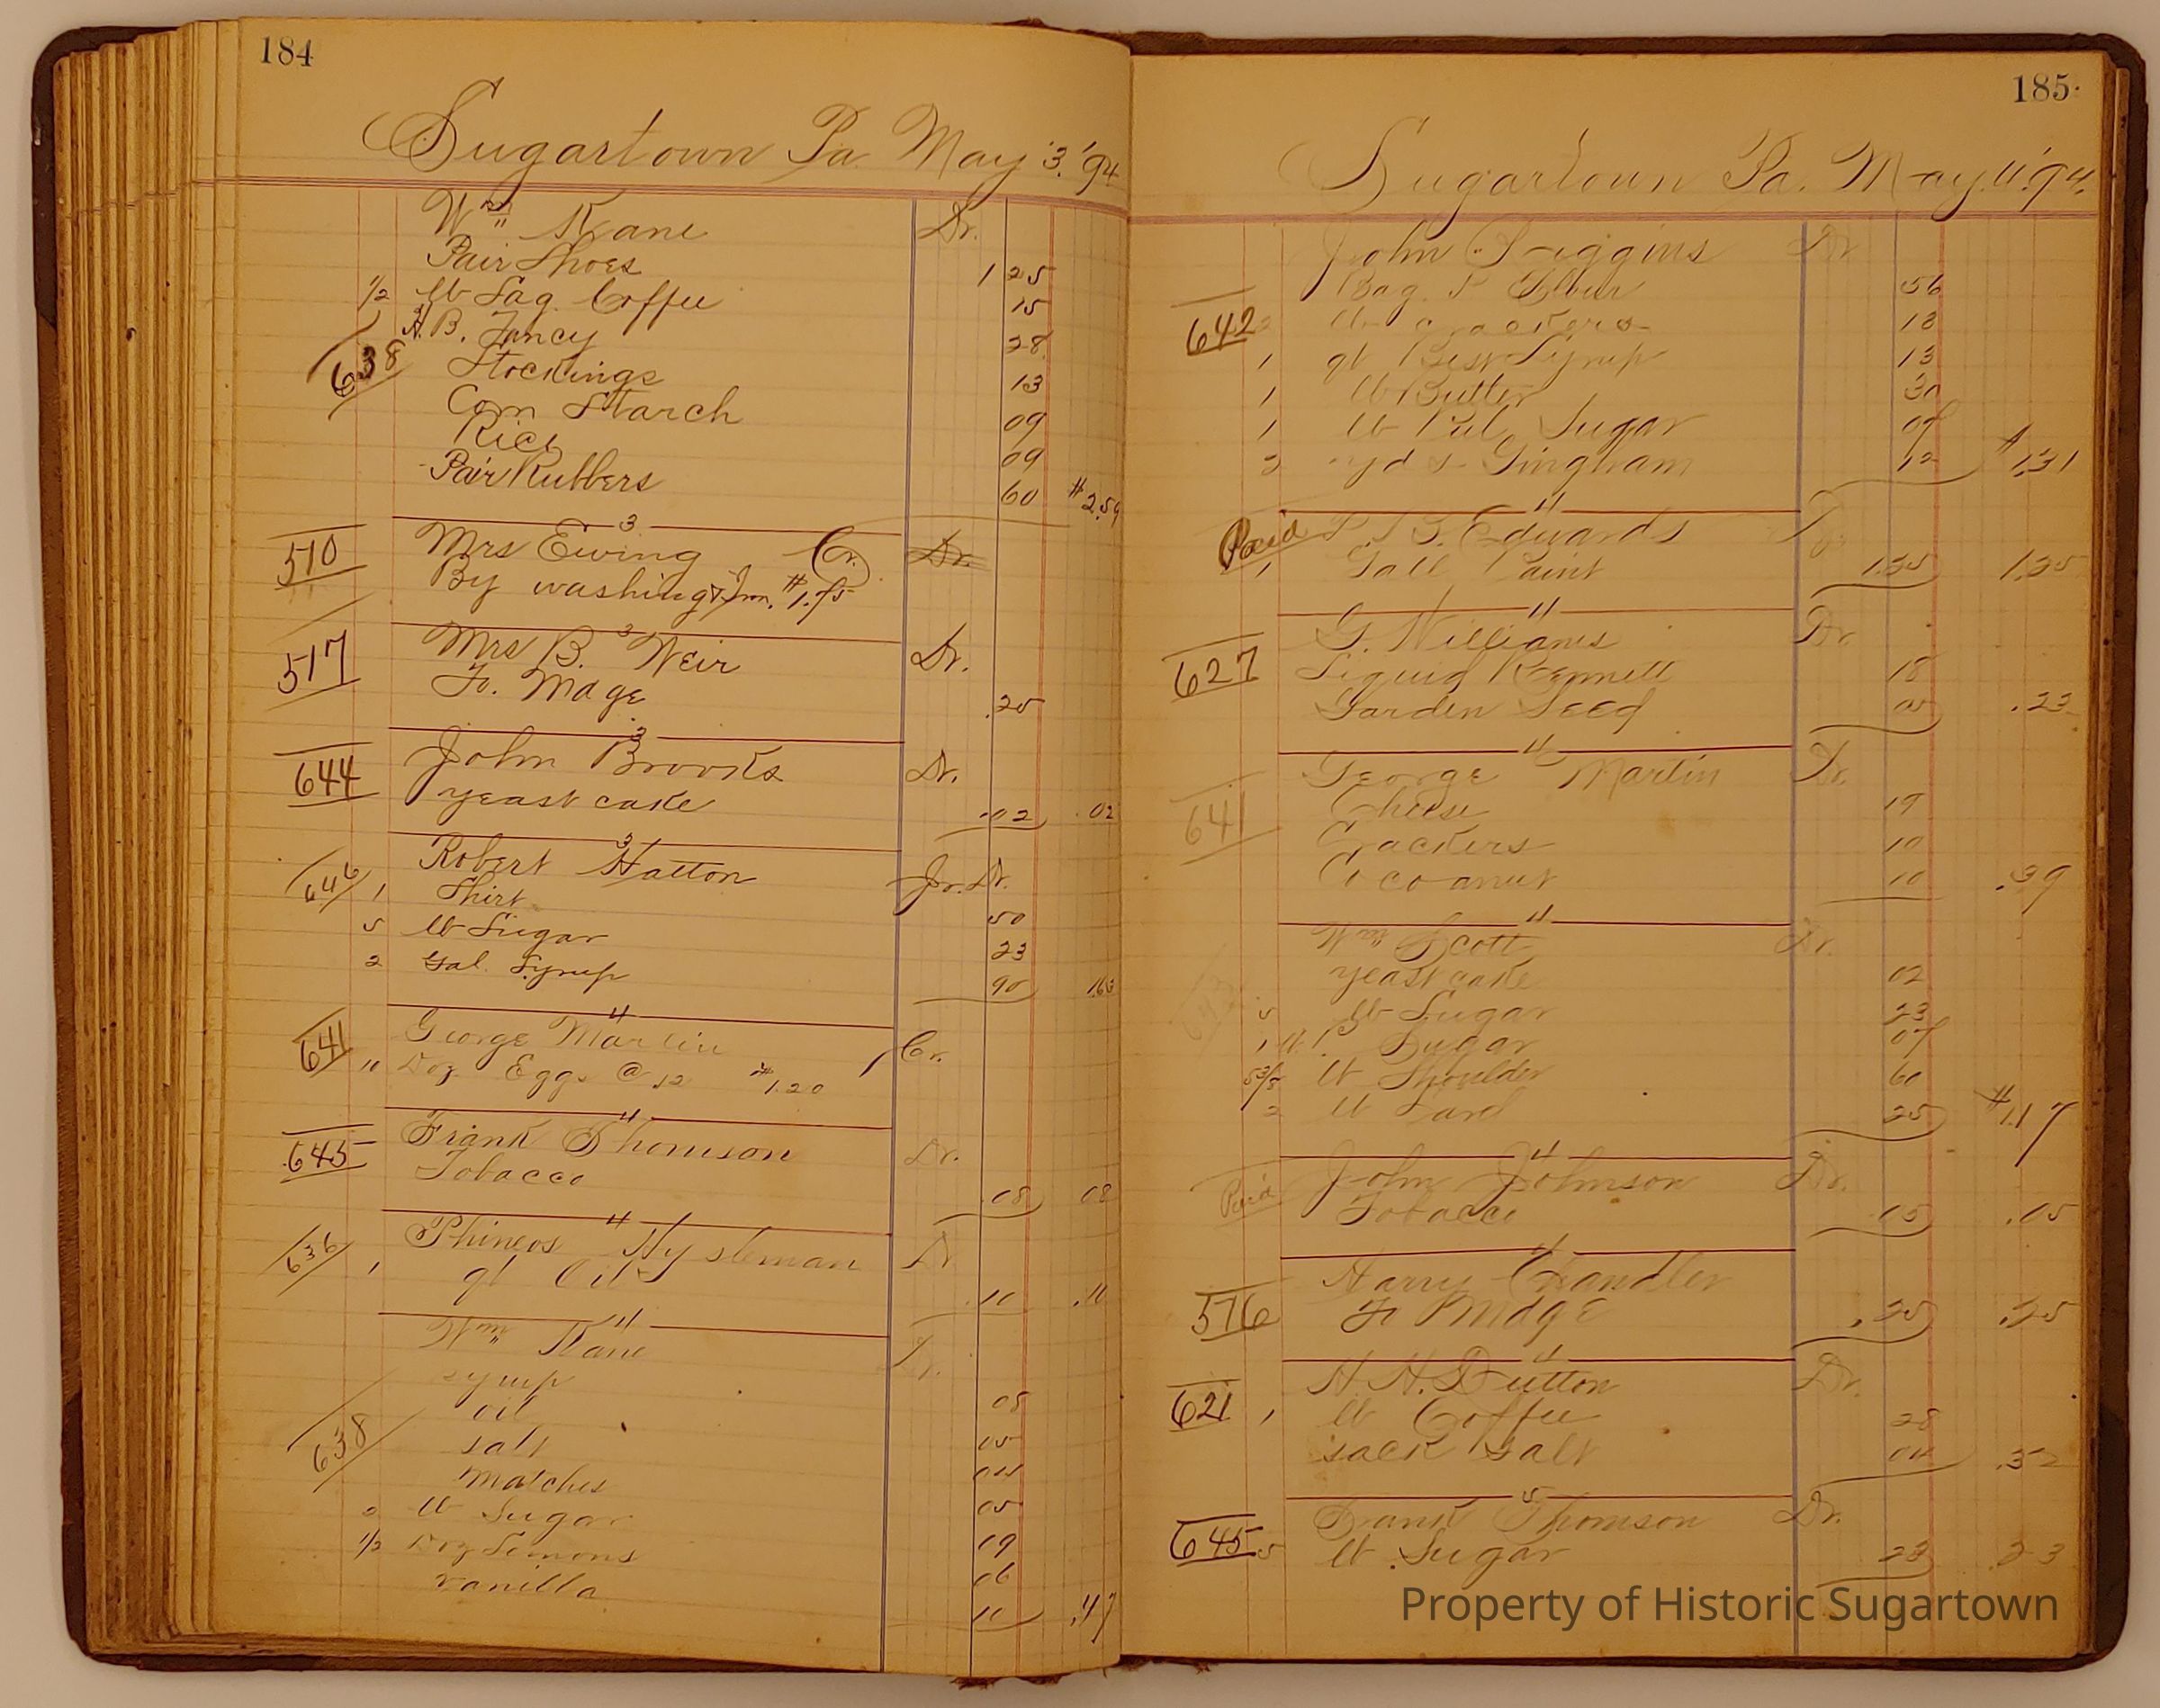 184
Sugartown Pa May 3. '94
Wm Kane Dr.
Pair Shoes 1 25
1/2 lb Lag. Coffee 15
H. B. Fancy 28
638
Stockings 13
Corn Starch 09
Rice 09
Pair Rubbers 60 $2.59
3
510 Mrs Ewing Cr. Dr.
By washing & Iron. $1.75
3
517 Mrs B. Weir Dr.
To. Mdge .25
3
644 John Brooks Dr.
yeast cake .02 .02
3
646 Robert Hatton Jr. Dr.
1 Shirt 50
5 lb Sugar 23
2 Gal. Syrup 90 1.63
4
641 George Martin Cr.
10 Doz Eggs @ .12 $1.20
4
645 Frank Thomson Dr.
Tobacco .08 08
4
636 Phineos Dr
1 qt Oil .10 .10
4
Wm Kane Dr.
syrup 08
oil 05
638 salt 04
matches 05
2 lb Sugar 09
1/2 Doz Lemons 06
vanilla 10 .47
185.
Sugartown Pa. May. 4. '94.
John Dr
Bag Flour 56
642 lb crackers 18
1 qt Best Syrup 13
1 lb Butter 30
1 lb Pul. Sugar 09
2 yds Gingham 12 $1.31
4
Paid Edwards Dr
1 Gall Paint 1.25 1.25
4
627 G. Williams Dr.
Liquid Rennett 18
Garden Seed 05 .23
4
George Martin Dr.
641 Cheese 19
Crackers 10
Cocoanut 10 .39
4
Wm Scott Dr.
yeast cake 02
643 5 lb Sugar 23
1 lb P. Sugar 07
lb Shoulder 60
2 lb Lard 25 $1.17
4
Paid John Johnson Dr.
Tobacco .05 .05
4
Harry Chandler
516 To Mdge .25 .25
4
621 H. H. Dutton Dr.
1 lb Coffee 28
sack salt 04 .32
5
Frank Thomson Dr.
645 5 lb Sugar 23 .23
Property of Historic Sugartown